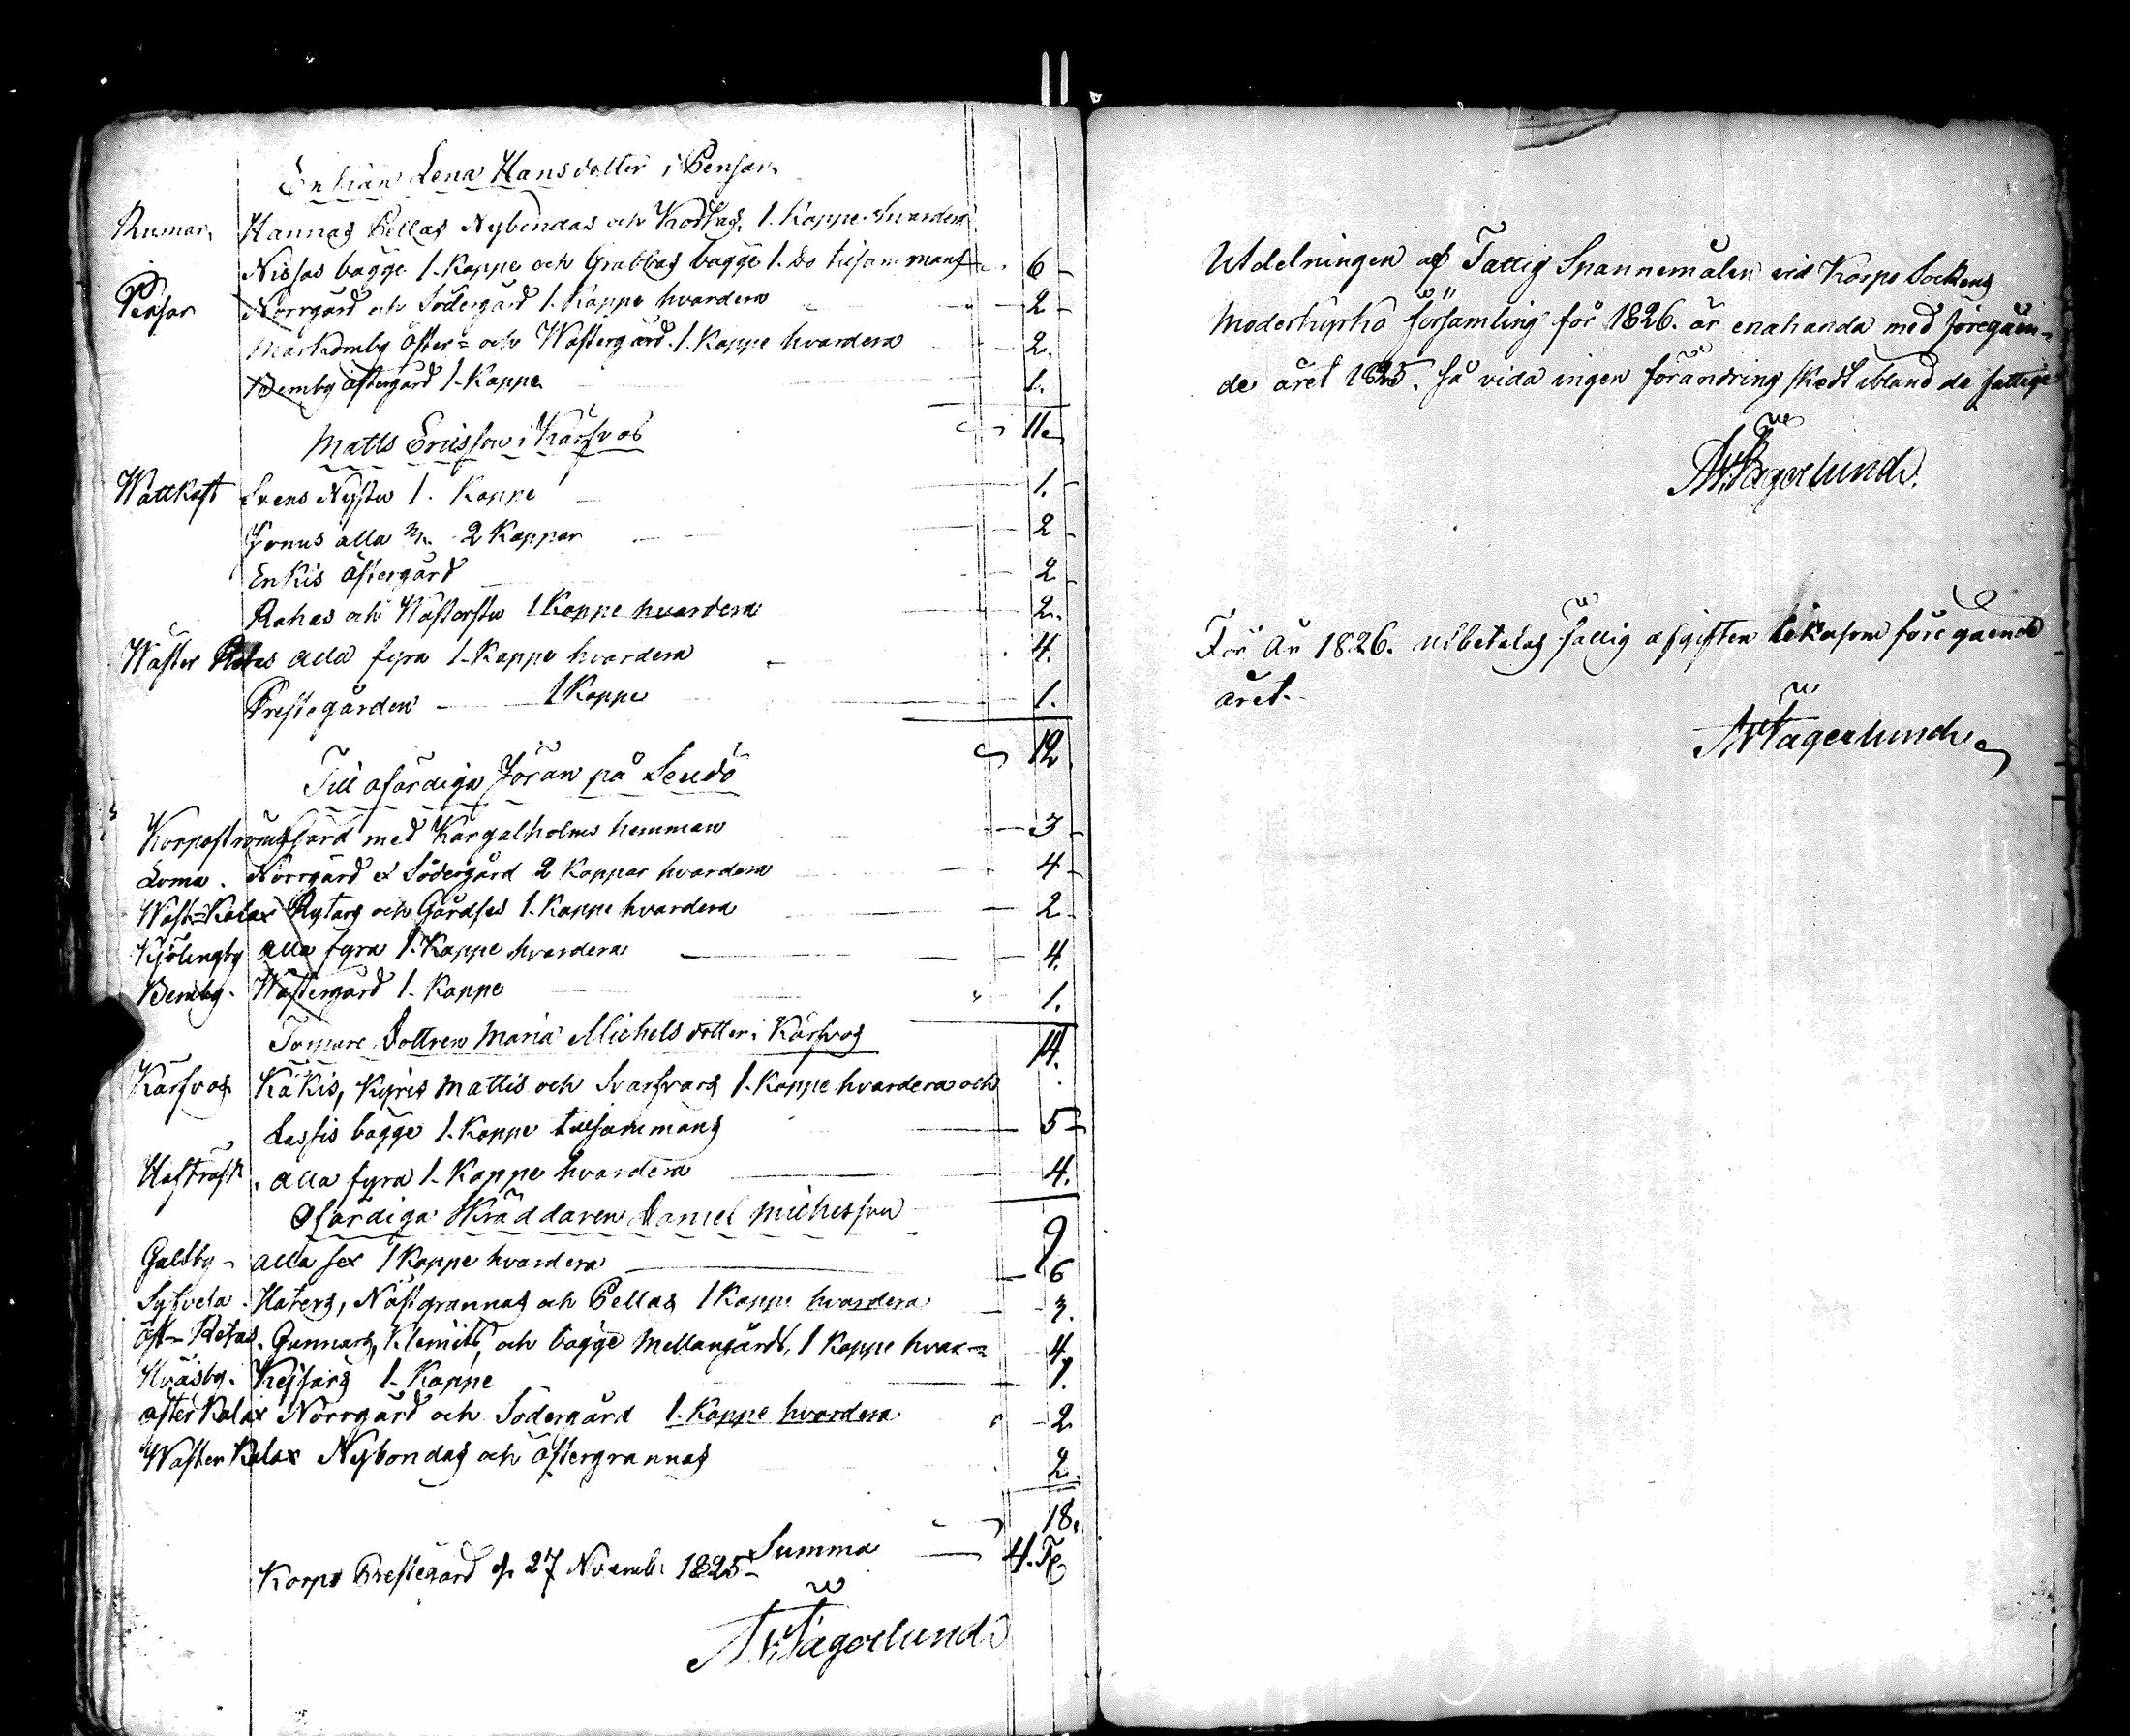 Enkian Lena Hansdotter i Pensar.
Rumar. Hannas Pellas Nybondas och Kodkas, 1. Kappe hvardera
Nissas bägge 1. Kappe och Grabbas bägge 1. Do tilsammans 6
Pensar Norrgård och Södergård 1. Kappe hvardera 2
Markomby Öster= och Wästergård. 1. Kappe hvardera 2.
Bemby Östergård 1. Kappe 1.
Matts Ericsson i Kärfvos 11.
Wattkast Svens Nystu 1. Kappe 1.
Jonus alla 2 Kappar 2
Enkis Östergård 2
Rahas och Wästerstu 1 Kappe hvardera 2.
Wäster Retais alla fyra 1. Kappe hvardera 4.
Prestegården 1 Kappe 1.
12
Till ofärdiga Jöran på Lendö
Korpoströms gård med Kargalholms hemman 3
Loma. Norrgård et Södergård 2 Kappar hvardera 4
Wäst=Kalax Rytars och Gårdsas 1. Kappe hvardera 2
Kyölingby alla fyra 1. Kappe hvardera 4.
Bemby. Wästergård 1. Kappe 1.
Tomare Dottren Maria Michelsdotter i Kärfvos 14.
Kärfvos Käkis, Kyris Mattis och Svarfvars 1. Kappe hvardera och
Lassis bägge 1. Kappe tilsammans 5
Hafträsk. alla fyra 1. Kappe hvardera 4.
Ofärdiga Skräddaren Daniel Michelsson 9
Galtby alla sex 1 Kappe hvardera 6
Sylvela. Haters, Nästgrannas och Pellas 1 Kappe hvardera 3.
Öst- Retais. Gunnars, Klemits, och bägge Mellangårds, 1 Kappe hvar= 4.
Hväsby. Kejsars 1. Kappe 1.
Öster Kalax Norrgård och Södergård 1. Kappe hvardera 2
Wäster Kalax Nybondas och Östergrannas 2.
18.
Summa 4. T
Korpo Prestegård d. 27 Novemb: 1825
A W Fagerlund
Utdelningen af Fattig Spannemålen vid Korpo Sockens
Moderkyrko församling för 1826. är enahanda med föregåen-
de året 1825. så vida ingen förändring skedt ibland de fattige
A W Fagerlund.
För År 1826. utbetalas fattig afgiften likasom föregående
året.
A W Fagerlund